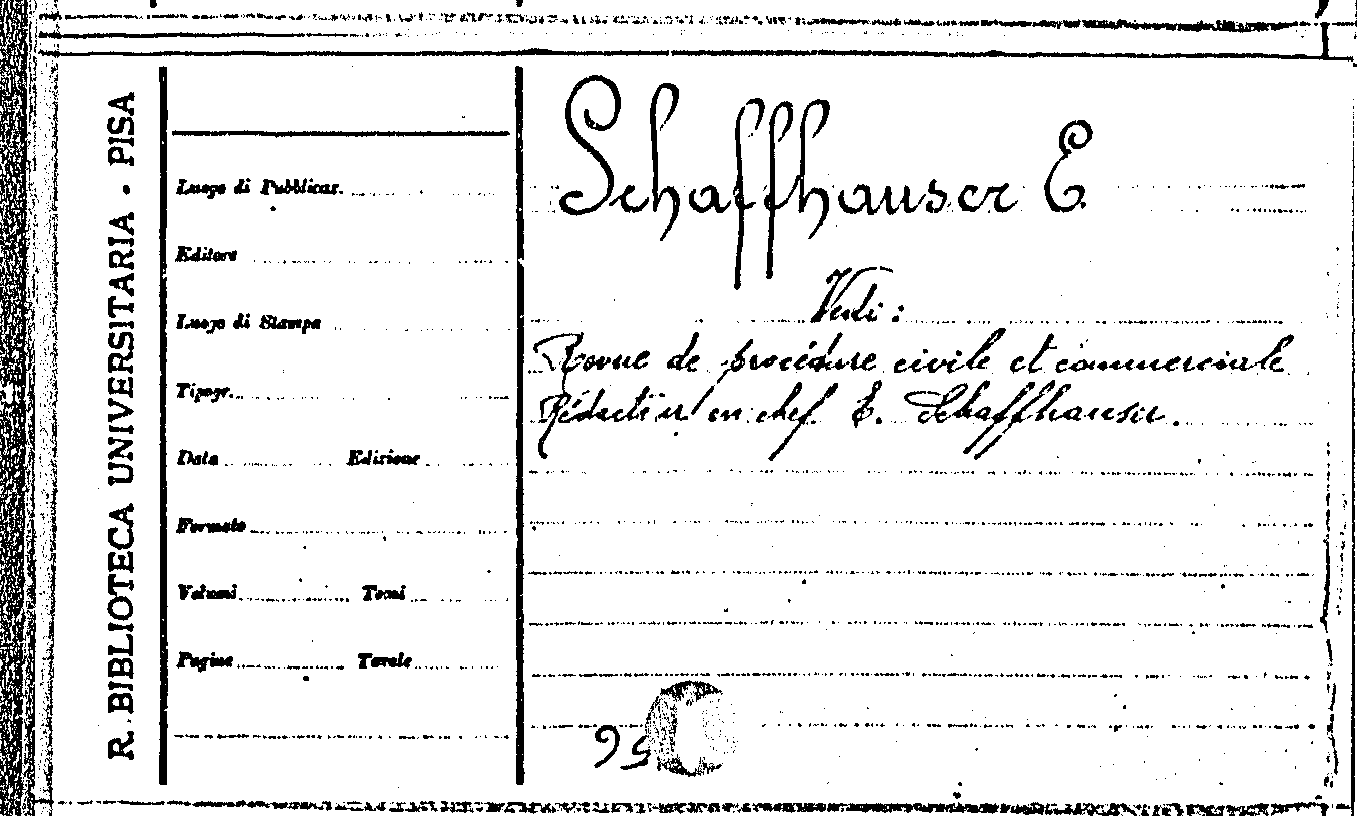 R. BIBLIOTECA UNIVERSITARIA - PISA
Luogo di Pubblicaz.
Editore
Luogo di Stampa
Tipogr.
Data Edizione
Formato
Volumi Tomi
Pagine Tavole
Schaffhauser E
Vedi:
Revue de procédure civile et commerciale
Rédacteur en chef. E. Schaffhauser.
95